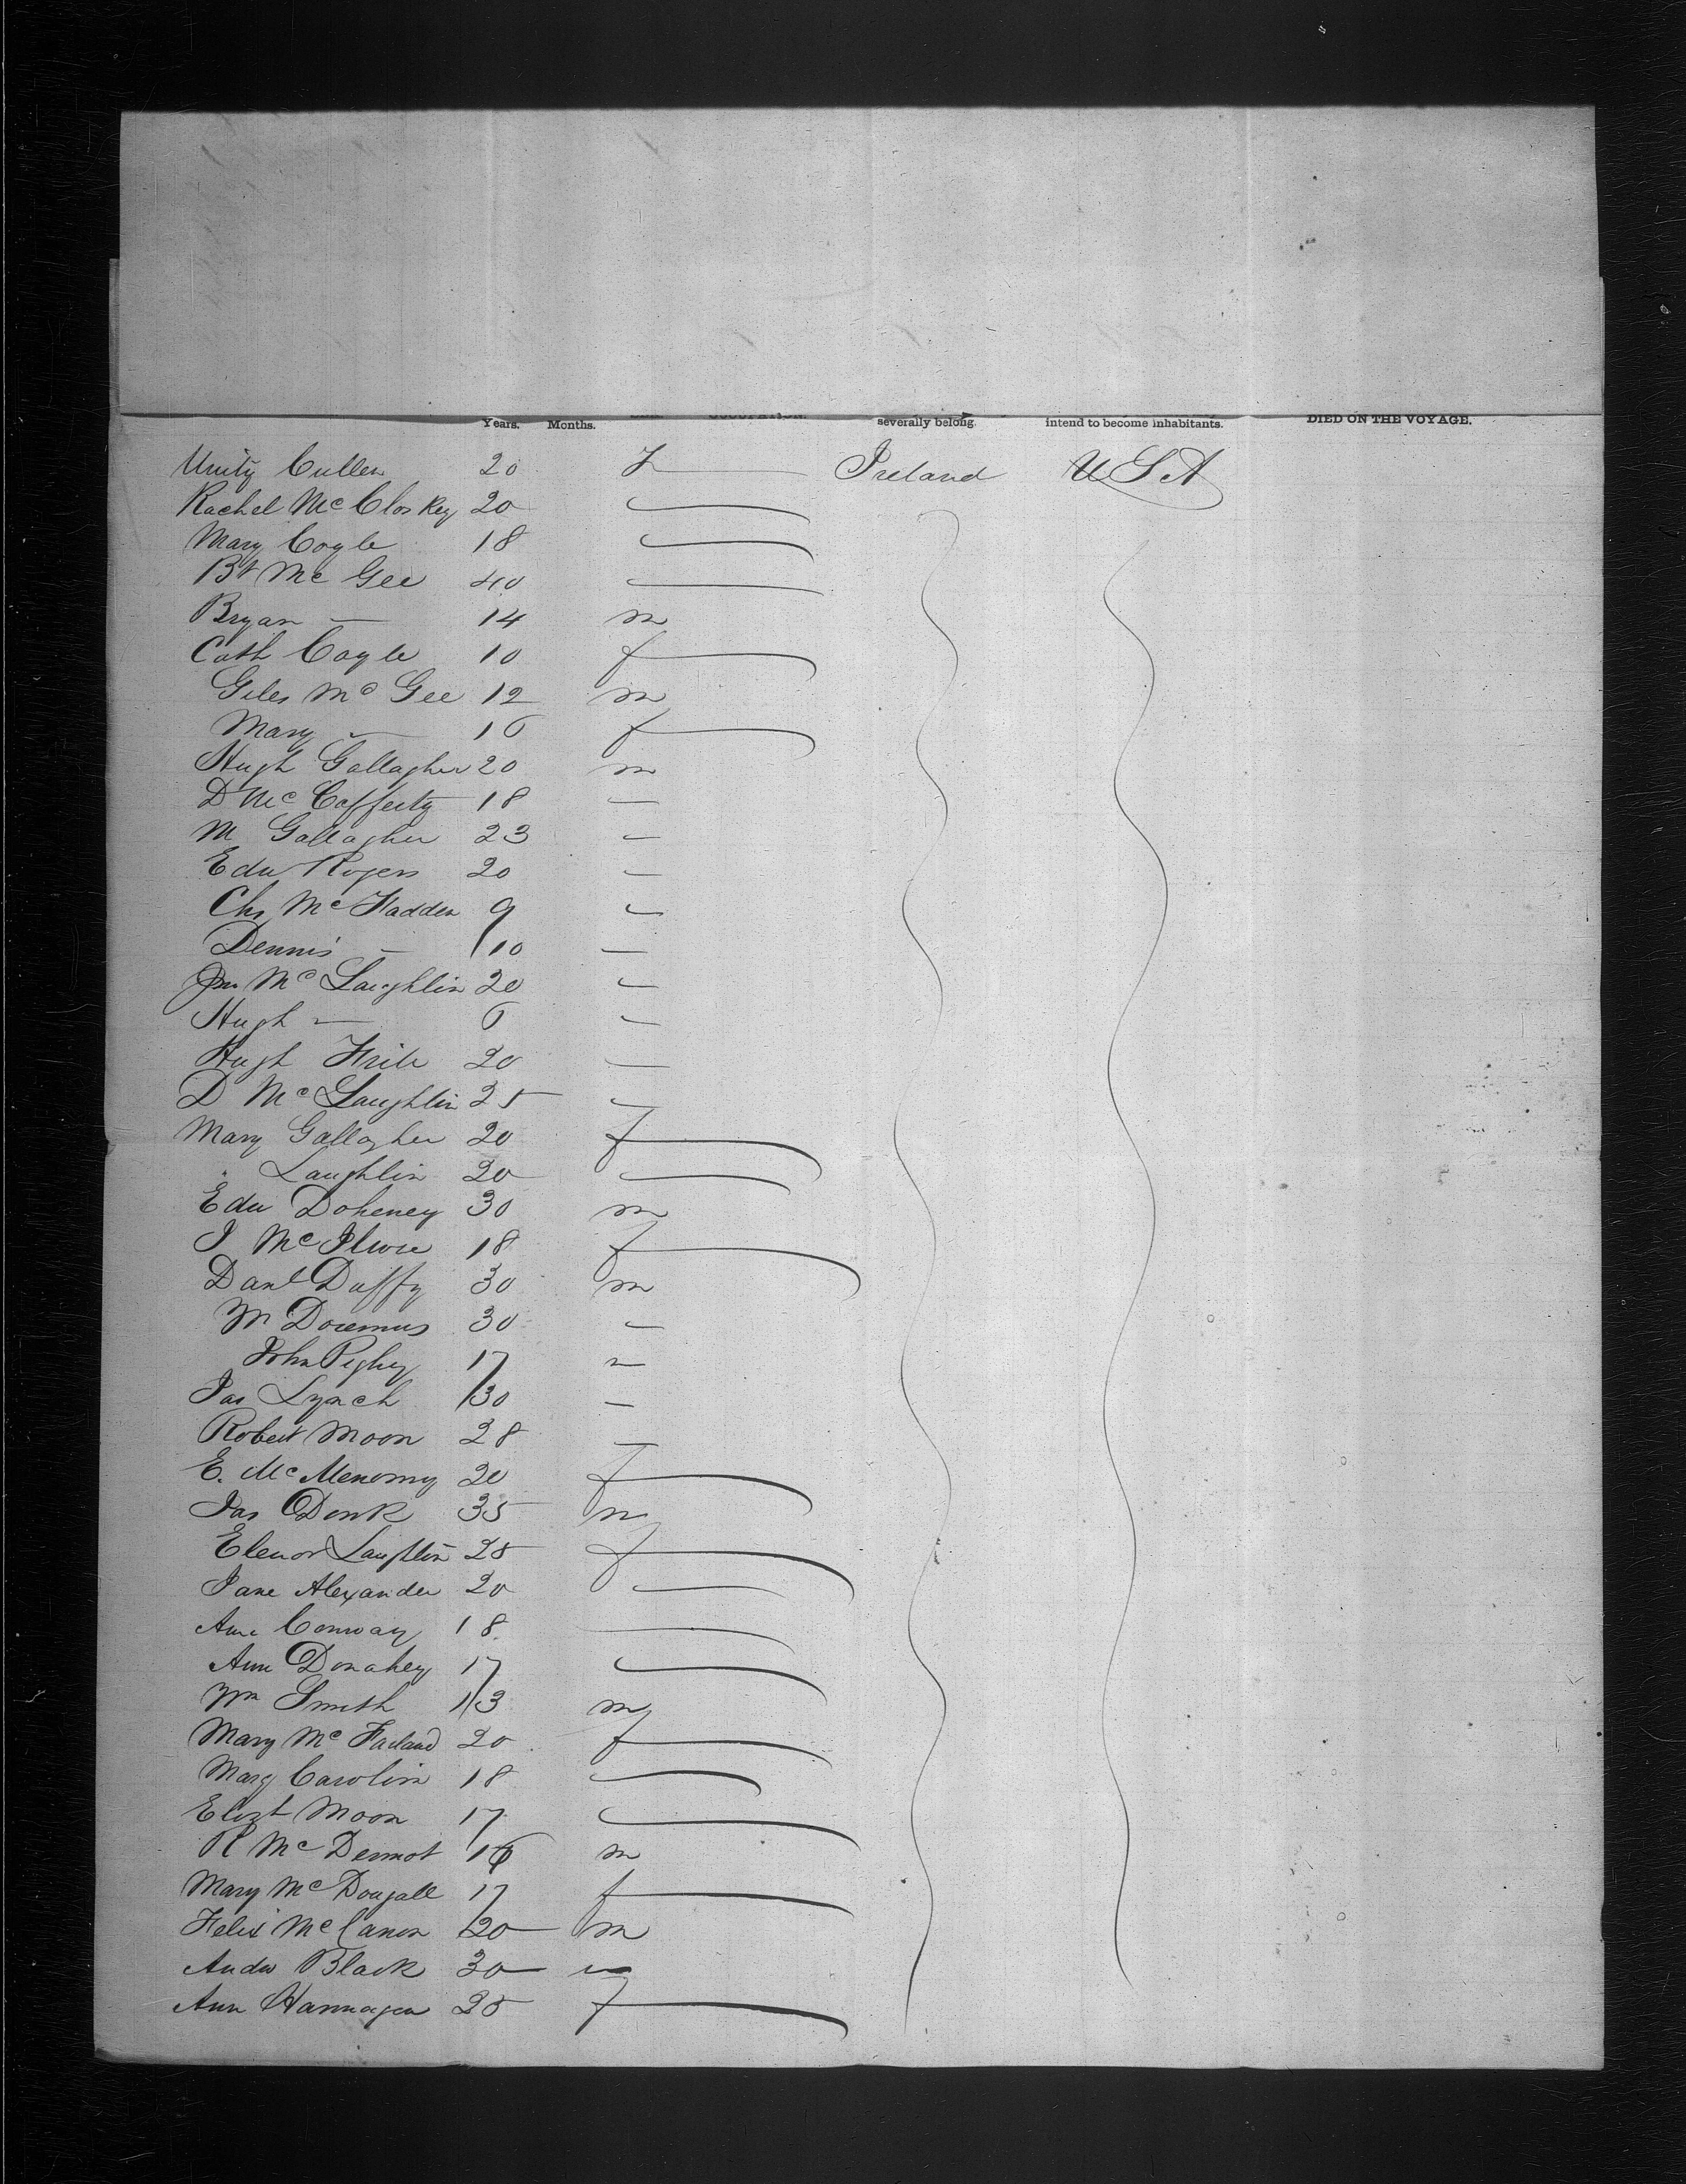 Years. Months. severally belong. intend to become inhabitants. DIED ON THE VOYAGE.
Unity Cullen 20 F Ireland USA
Rachel McCloskey 20
Mary Coyle 18
Bt McGee 40
Bryan — 14 m
Cath Coyle 10 f
Giles McGee 12 m
Mary — 16 f
Hugh Gallagher 20 m
D McCafferty 18 —
M Gallagher 23 —
Edw Rogers 20 —
Chs McFadden 9 —
Dennis — 10 —
Jno McLaughlin 20 —
Hugh — 6 —
Hugh 20 —
D McLaughlin 25 —
Mary Gallagher 20 f
" Laughlin 20
Edw Doheney 30 m
J 18 f
Danl Duffy 30 m
M Doremus 30 —
John 17 —
Jas Lynch 30 —
Robert Moon 28 —
E. McMenomy 20 f
Jas 35 m
Elenor Laughlin 25 f
Jane Alexander 20
Ann Conway 18
Ann Donahey 17
Wm Smith 13 m
Mary McFarland 20 f
Marg Carolin 18
Elizt Moon 17
R McDermot 16 m
Mary McDougall 17 f
Felix McCanon 20 m
Andw Black 30 m
Ann Hannagan 25 f